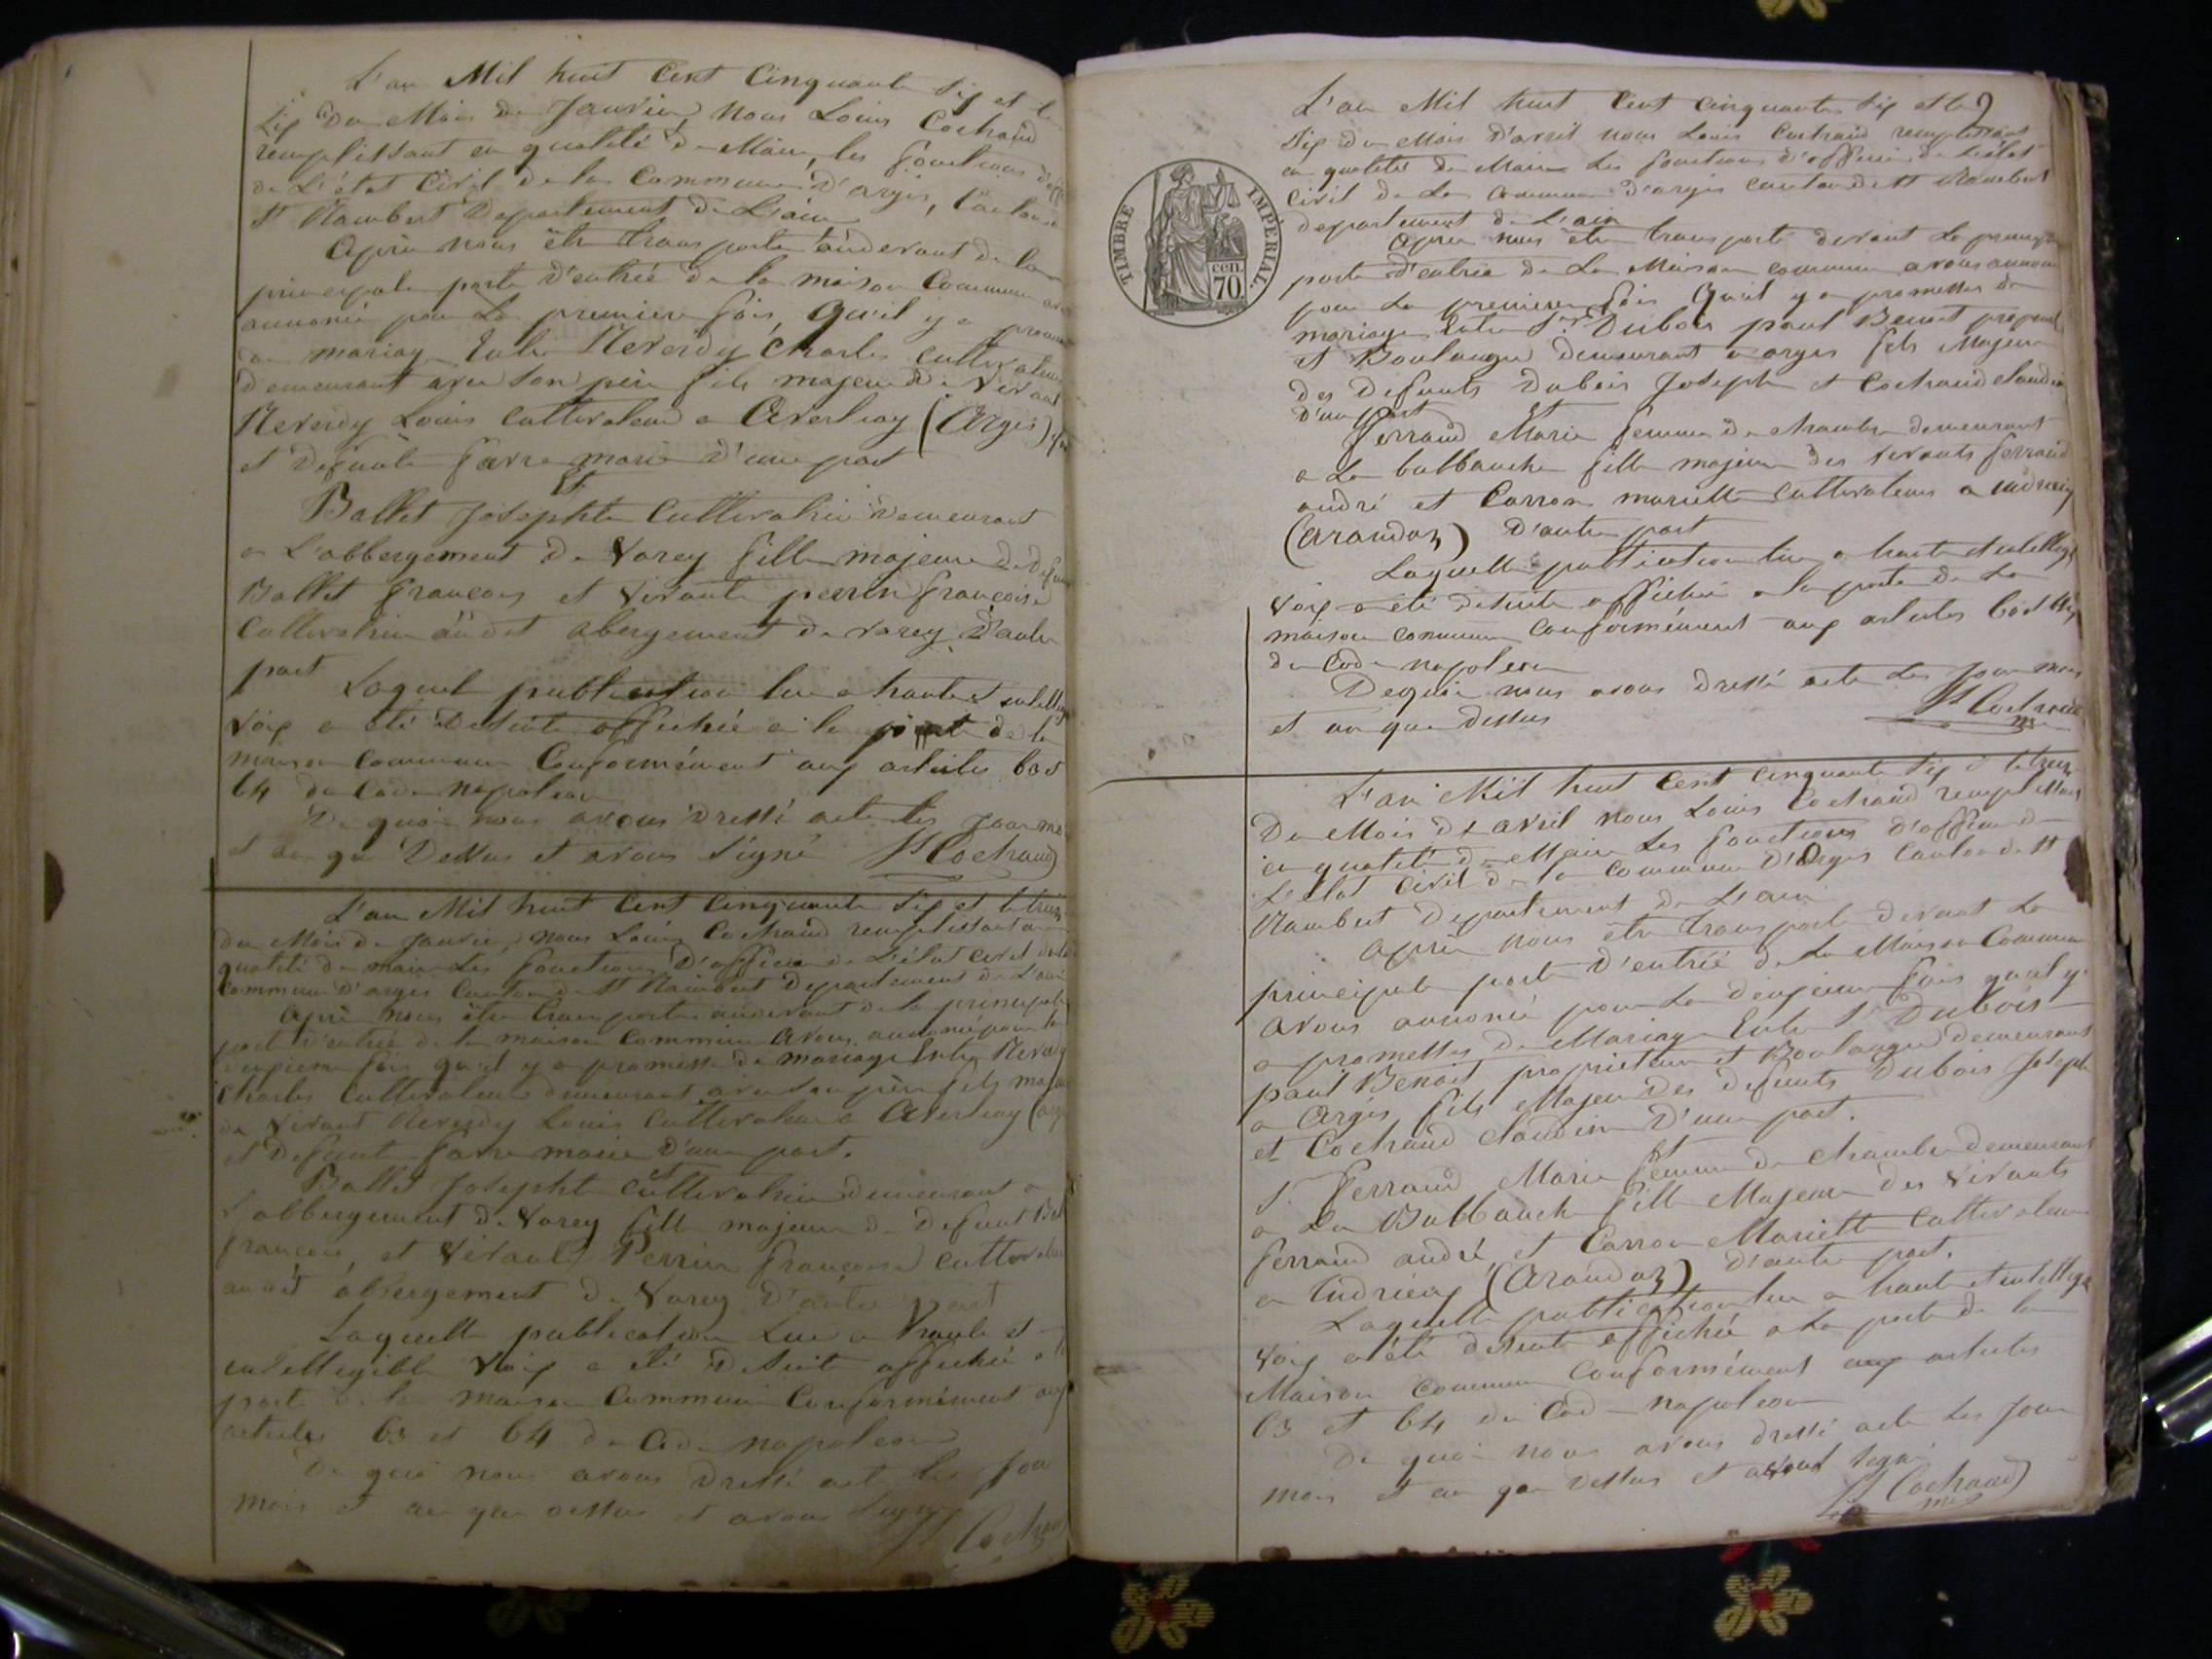 L'an Mil huit Cent Cinquante Six et le
Six du Mois de Janvier Nous Louis Cochaud
remplissant en qualité de Maire, les fonctions d'off
de L'état Civil de la Commune d'argis, Canton de
St Rambert Departement de L'ain
Après nous être transporté audevant de la
principale porte d'entrée de la maison Commune
annoncé pour La première fois, qu'il y a
de mariage Entre Reverdy Charles cultivateur
demeurant avec son père fils majeur de Vivant
Reverdy Louis cultivateur a (Argis)
et Defunte marie D'une part
Et
Ballet Josephte Cultivatrice demeurant
a L'abbergement de Varey fille majeure de
Ballet françois et Vivante perrin françoise
Cultivatrice audit abergement de varey D'autre
part
Laquel publication lue a haute et
voix a été Desuite affichée a la porte de la
maison Commune Conformément aux articles 63 et
64 du Code Napoleon
De quoi nous avons Dressé acte les Jour
et an que Dessus et avons signé Ls Cochaud
L'an Mil huit Cent Cinquante Six et le treize
du Mois de Janvier, nous Louis Cochaud remplissant en
qualité de maire Les fonctions D'officier de L'état civil de la
commune D'argis Canton de St Rambert Departement de L'ain
Après nous être transporté audevant de la principale
porte d'entrée de la maison Commune avons annoncé pour la
deuxième fois qu'il y a promesse de mariage Entre
Charles Cultivateur demeurant avec son père fils
de Vivant Reverdy Louis Cultivateur a
et Defunte marie D'une part.
et
Ballet Josephte Cultivatrice demeurant a
L'abbergement de Varey fille majeure de Defunt
françois, et Vivante Perrin françoise
audit abergement de Varey D'autre part
Laquelle publication Lue a haute et
intelligible Voix a été Desuite affichée a
porte de la maison Commune Conformément aux
articles 63 et 64 du Code napoleon
De quoi nous avons Dressé acte les Jour
mois et an que dessus et avons signé
Ls
L'an Mil huit Cent Cinquante Six et le
Six du Mois d'avril nous Louis Cochaud remplissant
en qualité de Maire Les fonctions d'officier de L'état
Civil de La Commune d'argis canton de St Rambert
departement de L'ain
TIMBRE IMPÉRIAL.
cen.
70
Après nous être transporté devant La
porte d'entrée de La Maison commune avons
pour La première fois Qu'il y a promesses de
mariage Entre Sr Dubois paul Benoit
et Boulanger demeurant a argis fils Majeur
des Defunts Dubois Joseph et Cochaud
D'une part
Et
ferraud Marie femme de chambre demeurant
a La balbauche fille majeure des vivants ferraud
andré et Carron mariette cultivateurs a
(Arandas) D'autre part
Laquelle publication lue a haute et
Voix a été desuite affichée a la porte de La
maison commune Conformément aux articles
du Code napoleon
Dequoi nous avons Dressé acte Les Jour mois
et an que dessus
Ls Cochaud
L'an Mil huit Cent Cinquante Six et le treize
Du Mois de avril nous Louis Cochaud remplissant
en qualité de Maire Les fonctions d'officier de
L'état Civil de la commune D'Argis Canton de St
Rambert Departement de L'ain
Après nous être transporté devant La
principale porte D'entrée de La Maison Commune
avons annoncé pour La deuxième fois qu'il y
a promesses de Mariage Entre Sr Dubois
paul Benoit proprietaire et Boulanger demeurant
a Argis fils Majeur Des defunts Dubois Joseph
et Cochaud D'une part.
Et
ferraud Marie femme de chambre demeurant
a La Balbauche fille Majeure des Vivants
ferraud andré, et Carron Mariette Cultivateurs
a (Arandas) D'autre part.
Laquelle publication lue a haute et
Voix a été desuite affichée a La porte de la
Maison Commune Conformément aux articles
63 et 64 du Code napoleon
De quoi nous avons dressé acte Les Jour
mois et an que dessus et avons signé
Ls Cochaud